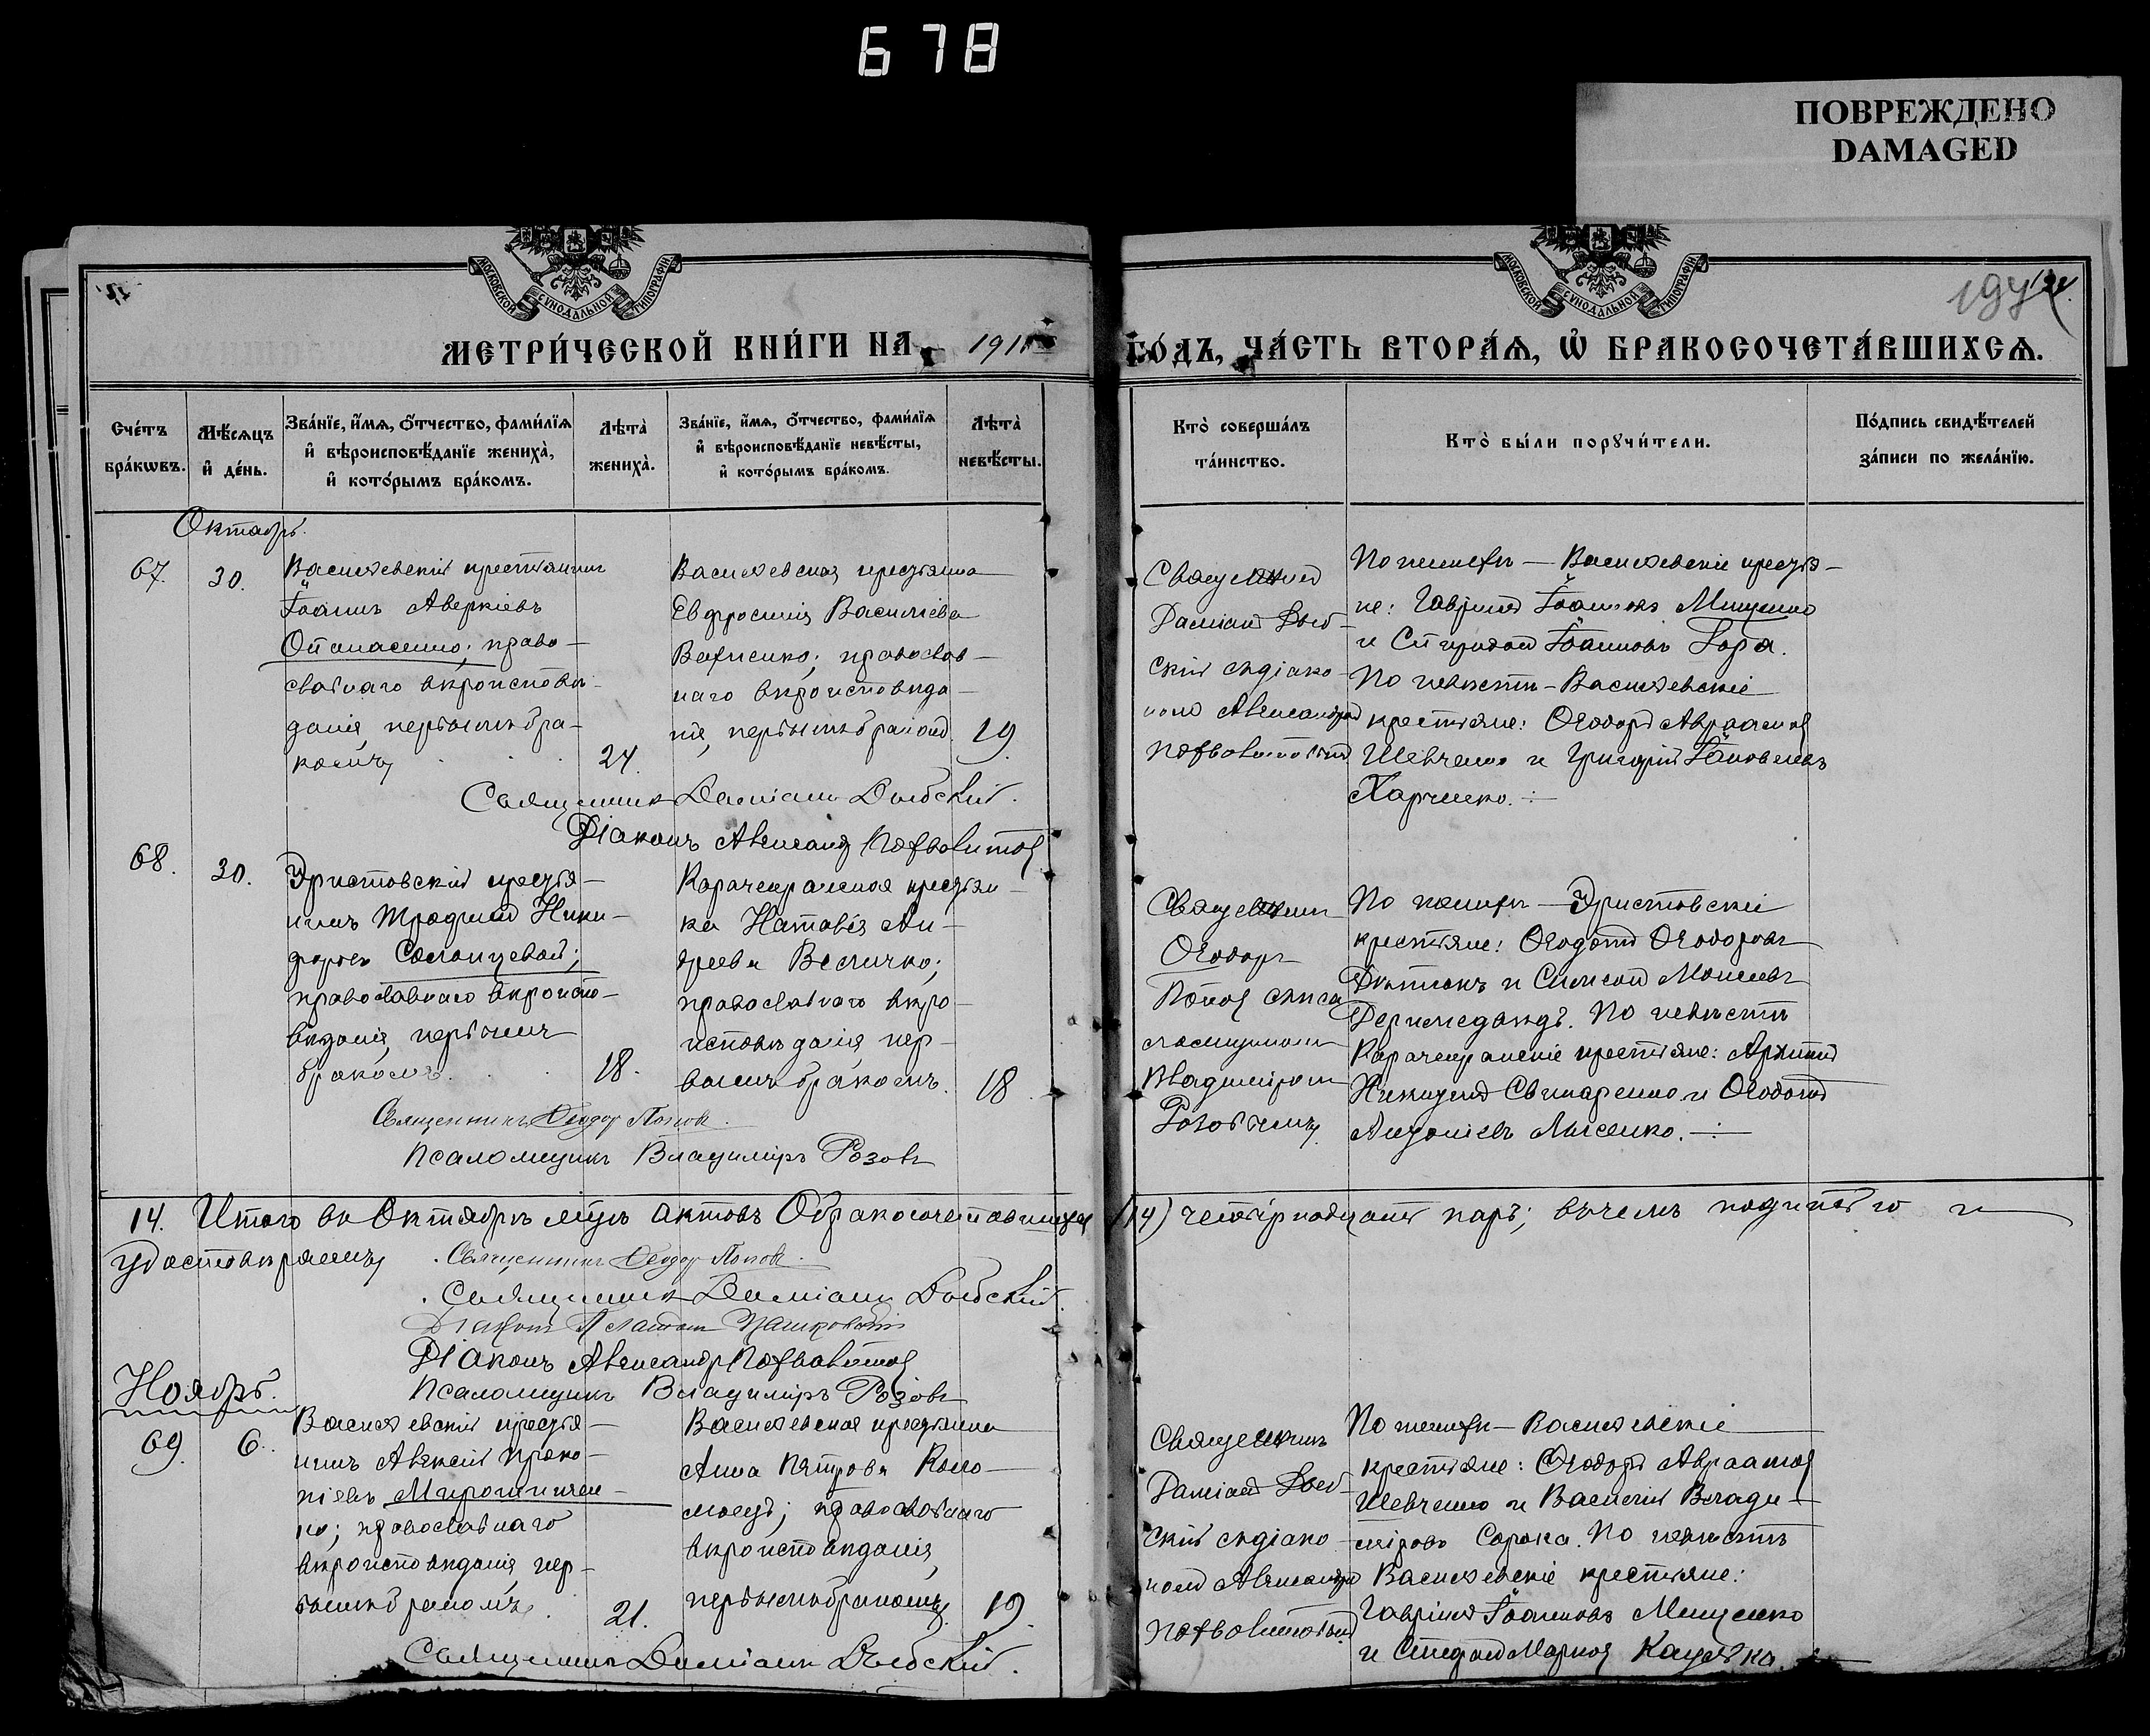 678
ПОВРЕЖДЕНО
DAMAGED
МОСКОВСКОЙ СѴНОДАЛЬНОЙ ТИПОГРАФІИ
МОСКОВСКОЙ СѴНОДАЛЬНОЙ ТИПОГРАФІИ
МЕТРИ́ЧЕСКОЙ КНИ́ГИ НА 1911
ГО́ДЪ, ЧА́СТЬ ВТОРА́Ѧ, Ѡ҆ БРАКОСОЧЕТА́ВШИХСѦ.
Сче́тъ бра́кѡвъ.
Мѣ́сѧцъ и҆ де́нь.
Зва́нїе, и҆́мѧ, ѻ҆́тчество, фами́лїѧ
и҆ вѣроисповѣ́данїе жениха̀,
и҆ кото́рымъ бра́комъ.
Лѣта̀ жениха̀.
Зва́нїе, и҆́мѧ, ѻ҆́тчество, фами́лїѧ
и҆ вѣроисповѣ́данїе невѣ́сты,
и҆ кото́рымъ бра́комъ.
Лѣта̀ невѣ́сты.
Кто̀ соверша́лъ та́инство.
Кто̀ бы́ли порꙋчи́тели.
По́дпись свидѣ́телей за́писи по жела́нїю.
Октябрь.
67.
30.
Василевскій крестьянинъ
Іоаннъ Аверкіевъ
Опанасенко; право-
славнаго вѣроисповѣ-
данія, первымъ бра-
комъ,
24.
Василевская крестьянка
Евфросинія Васильева
Вафиенко; православ-
наго вѣроисповѣда-
нія, первымъ бракомъ
19.
Священник
Даміан Дыб-
скій съ діако-
номъ Александром
По женихѣ — Василевскіе крестья-
не: Гавріилъ Іоанновъ Мищенко
и Спиридонъ Іоанновъ Гора.
По невѣстѣ - Василевскіе
крестьяне: Ѳеодоръ Авраамов
Шевченко и Григорій Іаковлевъ
Харченко. :-
Священникъ Даміанъ Дыбскій.
Діаконъ Александр
68.
30.
Эристовскій крестья-
нинъ Трофимъ Ники-
форовъ Солонцевой;
православнаго вѣроиспо-
вѣданія, первымъ
бракомъ.
18.
крестьян-
ка Наталія Ан-
дреева Величко;
православнаго вѣро-
исповѣданія, пер-
вымъ бракомъ.
18
Священник
Ѳеодоръ
Попов съ пса-
ломщикомъ
Владиміромъ
Розовымъ,
По женихѣ — Эристовскіе
крестьяне: Ѳеодотъ Ѳеодоровъ
и Симеонъ Моисеевъ
По невѣстѣ
крестьяне: Архипъ
Свинаренко и Ѳеодотъ
Антоніевъ Лысенко. —:—
Священникъ Ѳеодор Поповъ.
Псаломщикъ Владиміръ Розовъ
14. Итого въ Октябрѣ м-цѣ актовъ О бракосочетавшихся
(14) четырнадцать паръ; въ чемъ подписью и
удостовѣряемъ,
Священникъ Ѳеодор Поповъ.
Священникъ Даміанъ Дыбскій.
Діаконъ Платонъ
Діаконъ Александр
Псаломщикъ Владиміръ Розовъ
Ноябрь.
69.
6.
Василевскій крестья-
нинъ Алексій Проко-
піевъ Мирошничен-
ко; православнаго
вѣроисповѣданія, пер-
вымъ бракомъ,
21.
Василевская крестьянка
Анна Петрова Коло-
моецъ; православнаго
вѣроисповѣданія,
первымъ бракомъ,
19.
Священникъ
Даміан Дыб-
скій съ діако-
номъ Александром
По женихѣ — Василевскіе
крестьяне: Ѳеодоръ Авраамов
Шевченко и Василій Влади-
міровъ Сорока. По невѣстѣ
Василевскіе крестьяне:
Гавріилъ Іоанновъ Мищенко
и Стефанъ Марков
Священникъ Даміанъ Дыбскій.